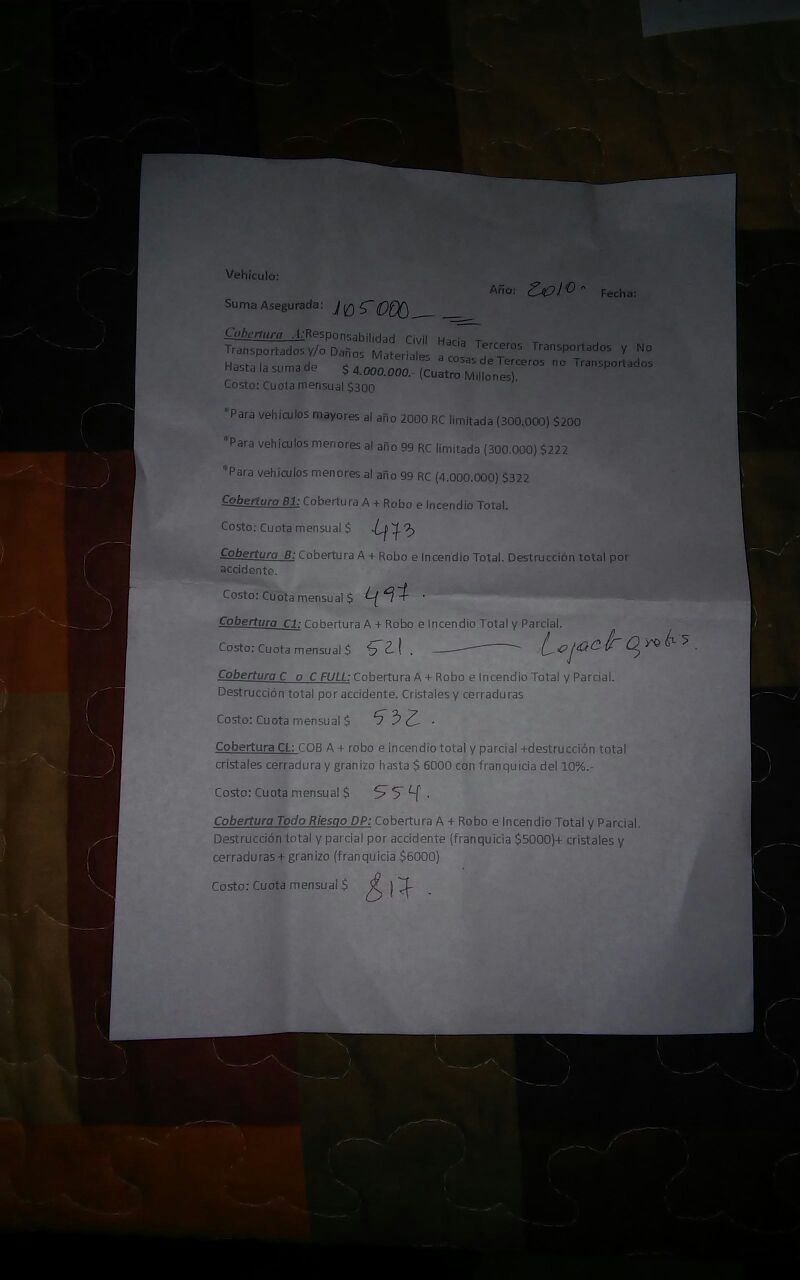 Vehículo:
Año: 2010 Fecha:
Suma Asegurada: 105000
Cobertura A:Responsabilidad Civil Hacia Terceros Transportados y No
Transportados y/o Daños Materiales a cosas de Terceros no Transportados
Hasta la suma de $ 4.000.000.- (Cuatro Millones).
Costo: Cuota mensual $300
*Para vehículos mayores al año 2000 RC limitada (300.000) $200
*Para vehículos menores al año 99 RC limitada (300.000) $222
*Para vehículos menores al año 99 RC (4.000.000) $322
Cobertura B1: Cobertura A + Robo e Incendio Total.
Costo: Cuota mensual $ 473
Cobertura B: Cobertura A + Robo e Incendio Total. Destrucción total por
accidente.
Costo: Cuota mensual $ 497.
Cobertura C1: Cobertura A + Robo e Incendio Total y Parcial.
Costo: Cuota mensual $ 521. — Lojack Gratis.
Cobertura C o C FULL: Cobertura A + Robo e Incendio Total y Parcial.
Destrucción total por accidente. Cristales y cerraduras
Costo: Cuota mensual $ 532.
Cobertura CL: COB A + robo e incendio total y parcial +destrucción total
cristales cerradura y granizo hasta $ 6000 con franquicia del 10%.-
Costo: Cuota mensual $ 554.
Cobertura Todo Riesgo DP: Cobertura A + Robo e Incendio Total y Parcial.
Destrucción total y parcial por accidente (franquicia $5000)+ cristales y
cerraduras + granizo (franquicia $6000)
Costo: Cuota mensual $ 817.